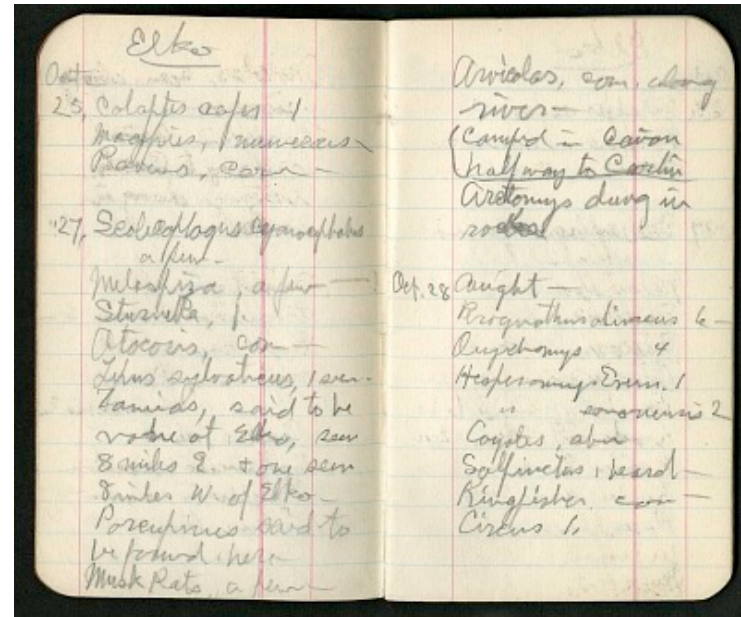 Elko
Oct
25, Colaptes cafer 1
Magpies, numerous
Ravens, com
27, Scolecophagus cyanocephalus
a few
Melospiza, a few
Sturnella, 1.
Otocoris, com
Lepus sylvaticus, 1 seen.
Tamias, said to be
none at Elko, seen
8 miles E. & one seen
8 miles W. of Elko
Porcupines said to
be found here
Musk Rats, a few
Arvicolas, com. along
river
(Camped in Cañon
halfway to Carlin
Arctomys dung in
rocks
Oct. 28 Caught
6
Onychomys 4
Hesperomys Erem. 1
" sonoriensis 2
Coyotes, abun
Salpinctes, heard
Kingfisher com
Circus 1,